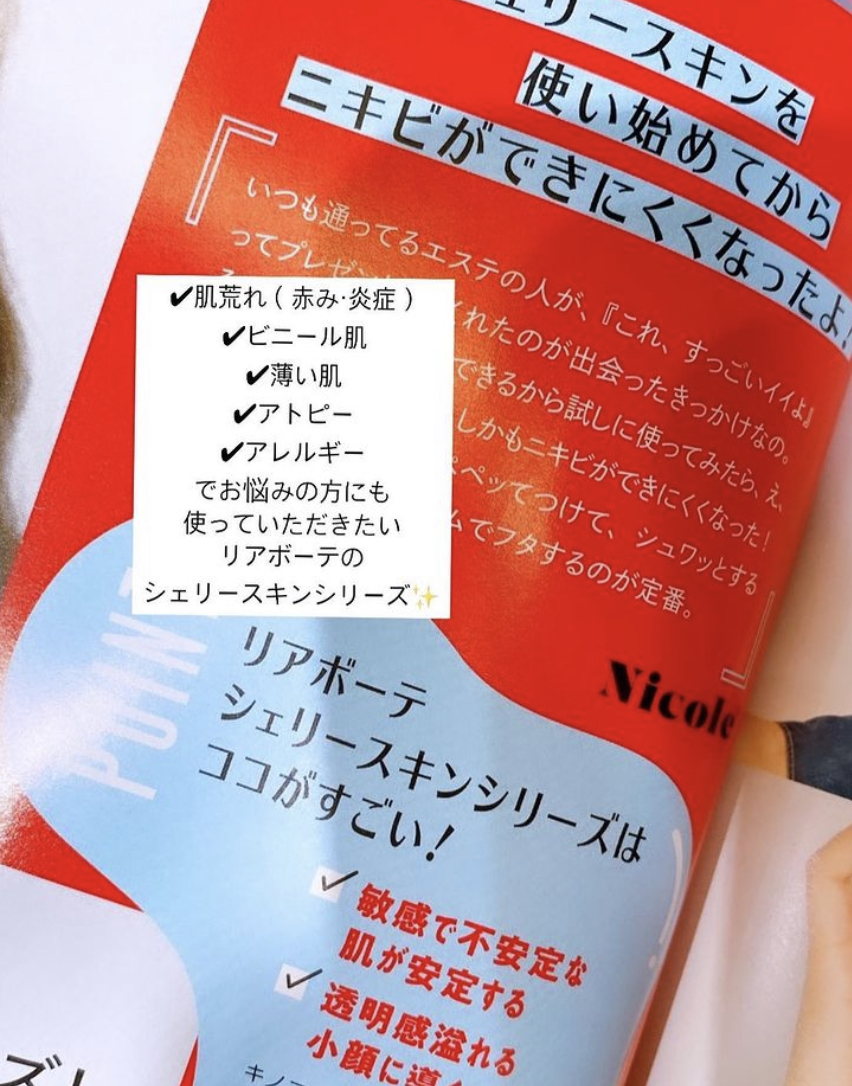 ェリースキンを
使い始めてから
ニキビができにくくなったよ!
『
いつも通ってるエステの人が、『これ、すっごいイイよ』
ってプレゼン
くれたのが出会ったきっかけなの。
できるから試しに使ってみたら、え、
しかもニキビができにくくなった!
ペッてつけて、シュワッとする
ムでフタするのが定番。
』
Nicole
✔肌荒れ ( 赤み·炎症 )
✔ビニール肌
✔薄い肌
✔アトピー
✔アレルギー
でお悩みの方にも
使っていただきたい
リアボーテの
シェリースキンシリーズ✨
POINT
リアボーテ
シェリースキンシリーズは
ココがすごい!
✓ 敏感で不安定な
肌が安定する
✓ 透明感溢れる
小顔に導く
キノ
ズ